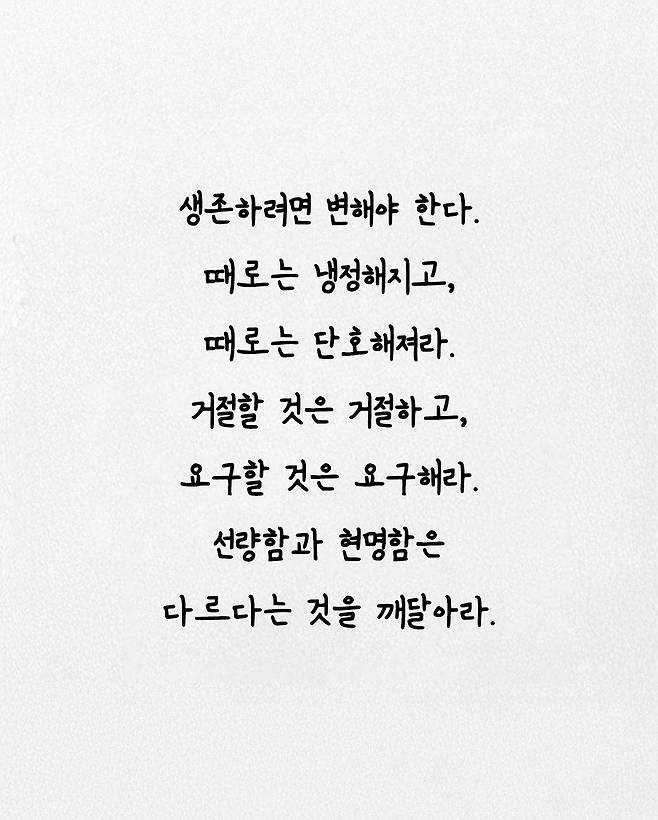 생존하려면 변해야 한다.
때로는 냉정해지고,
때로는 단호해져라.
거절할 것은 거절하고,
요구할 것은 요구해라.
선량함과 현명함은
다르다는 것을 깨달아라.